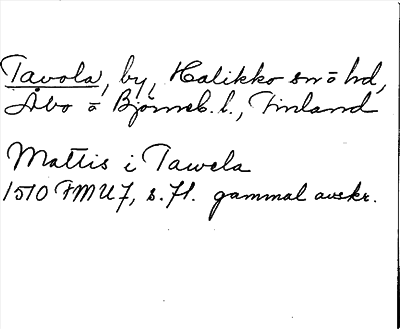 Tavola, by, Halikko sn o hd,
Åbo o Björneb. l., Finland
Mattis i Tawela
1510 FMU 7, s. 71. gammal avskr.